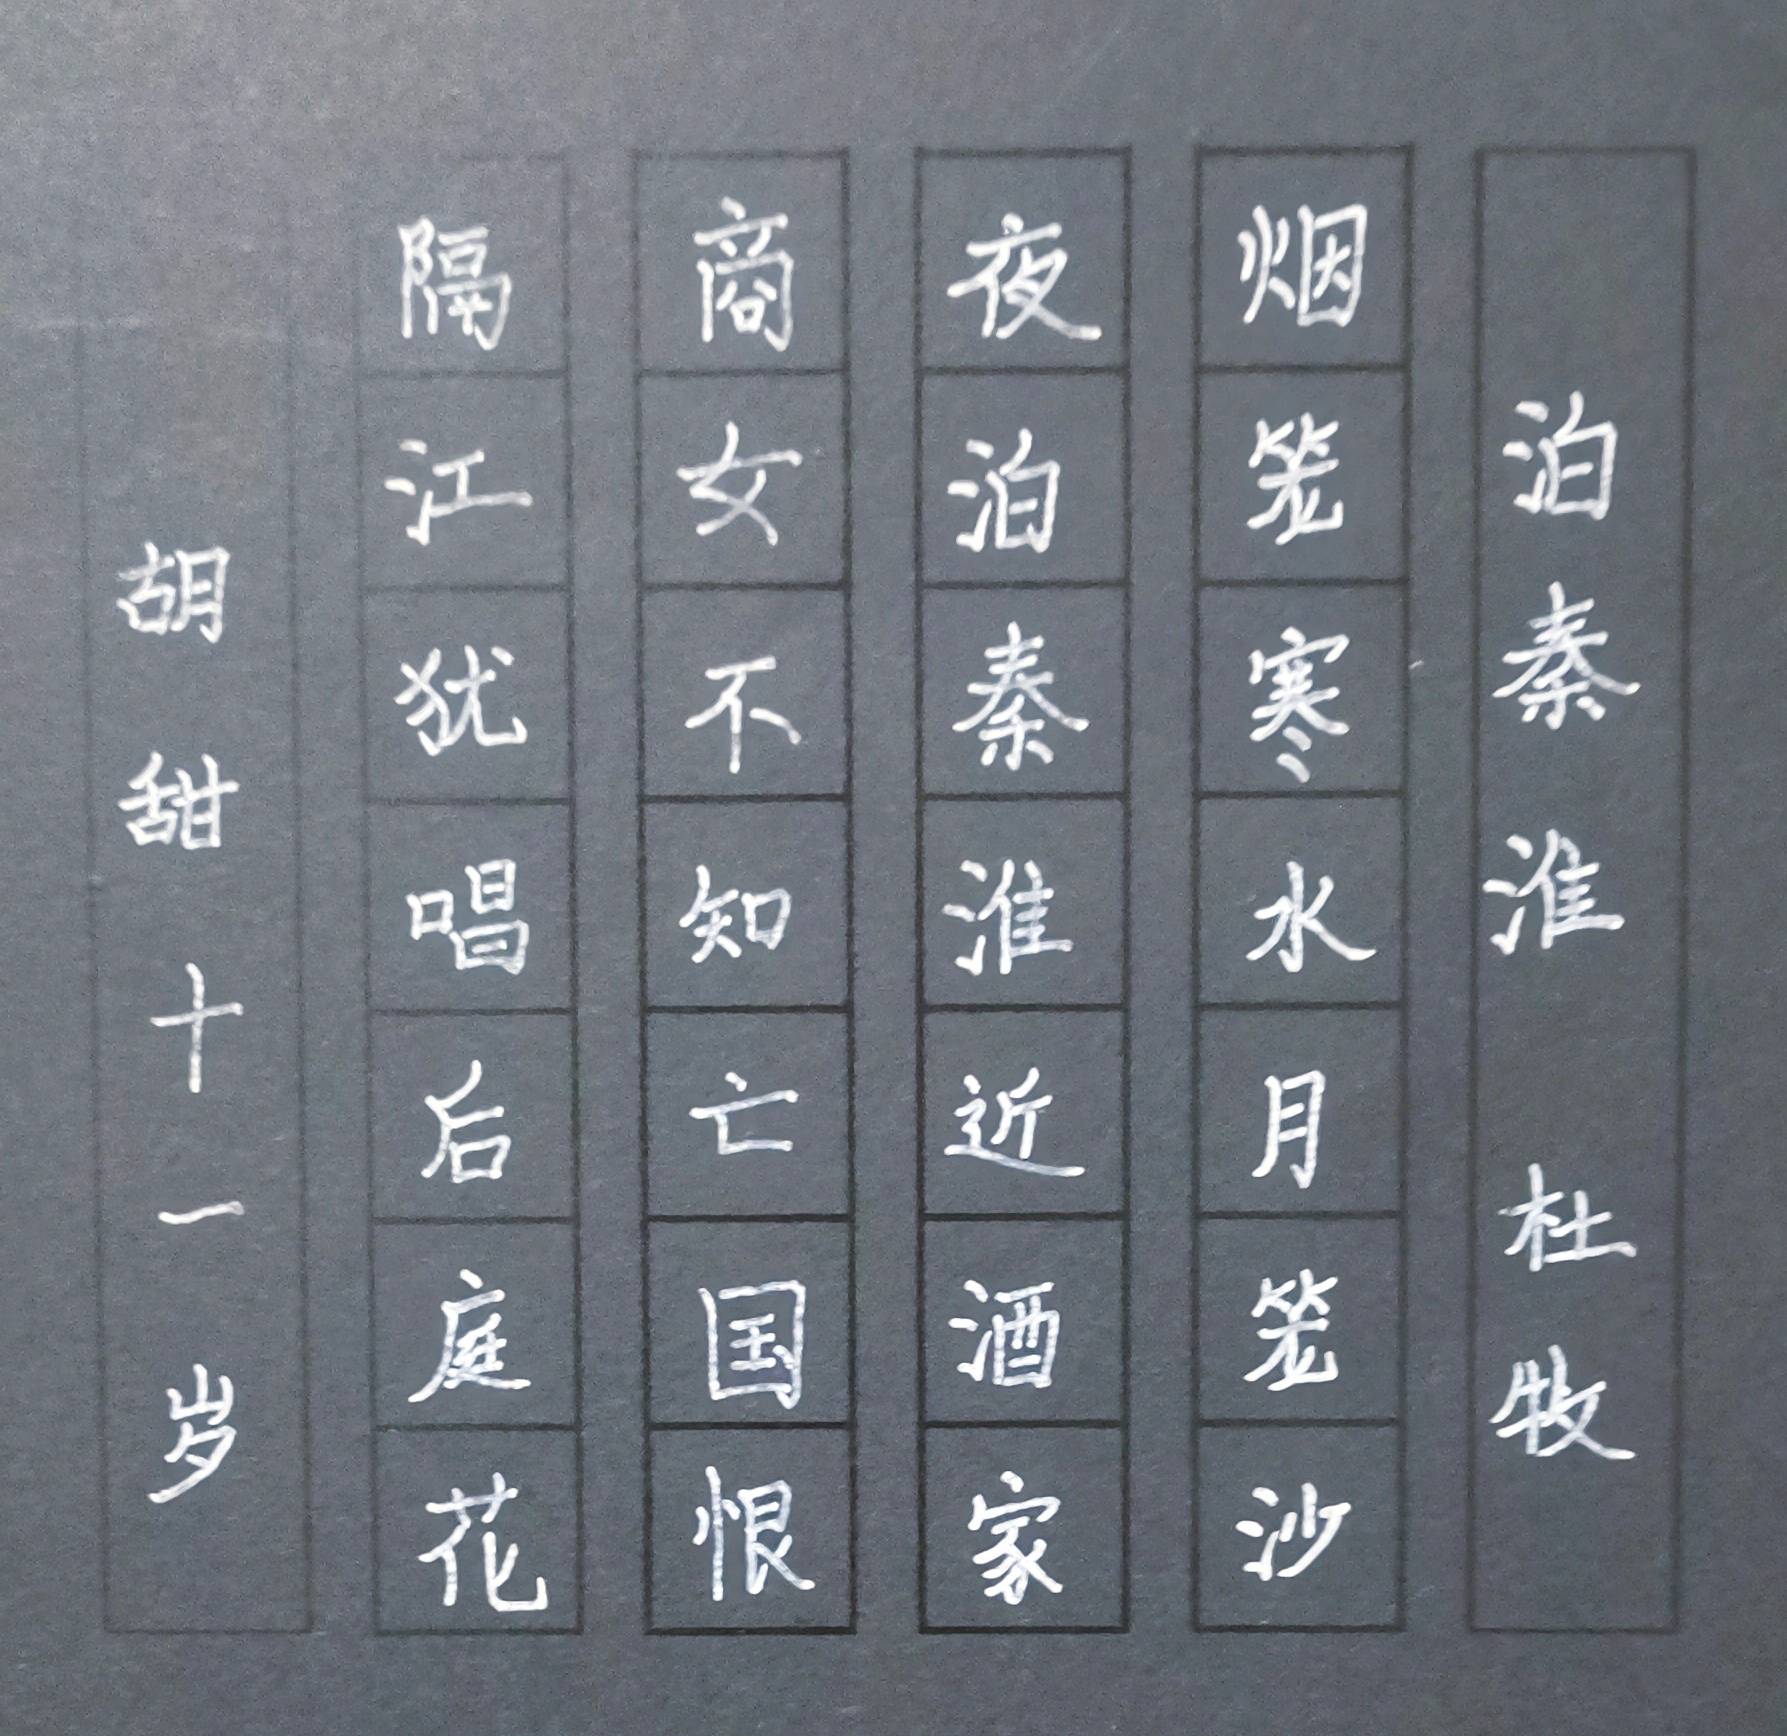 泊秦淮 杜牧
烟笼寒水月笼沙
夜泊秦淮近酒家
商女不知亡国恨
隔江犹唱后庭花
胡甜十一岁